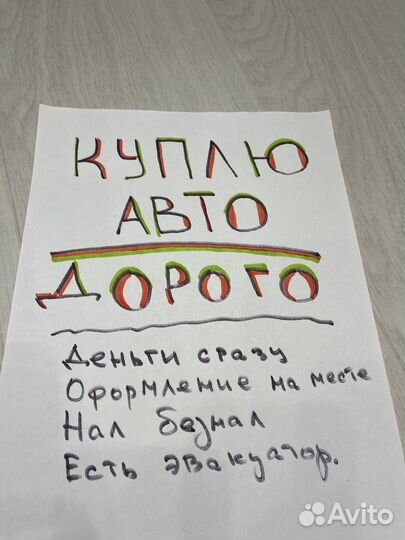 КУПЛЮ
АВТО
ДОРОГО
Деньги сразу
Оформление на месте
Нал безнал
Есть эвакуатор.
Avito